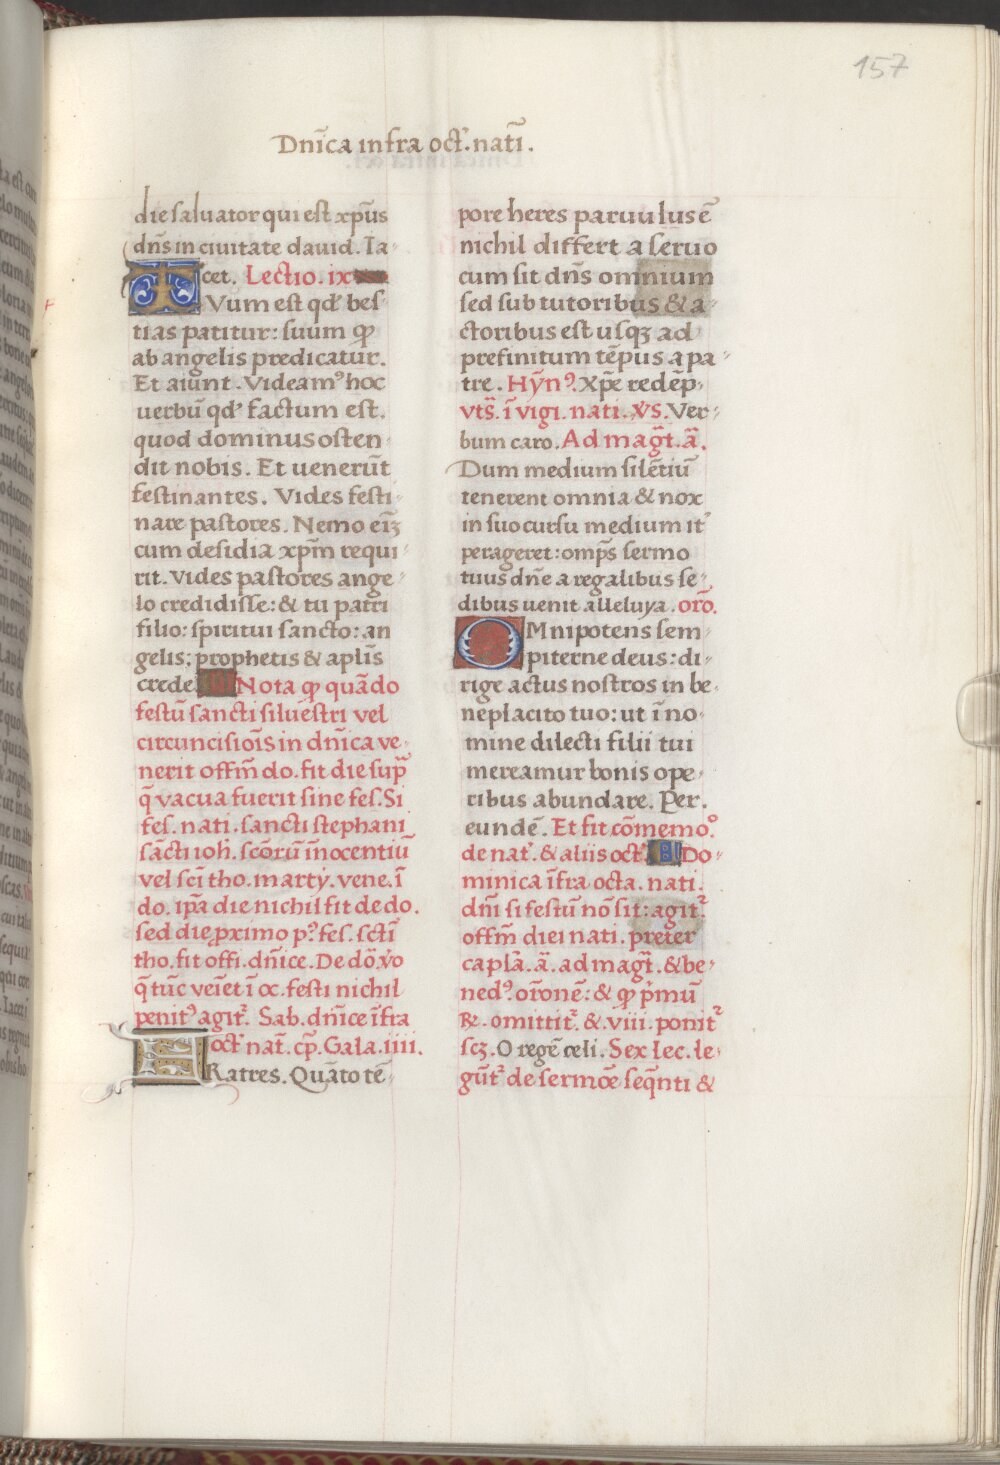 157
Dn̄ica infra oct̉. natī.
die saluator qui est xp̄us
dn̄s in ciuitate dauid. Ia-
cet. Lectio. ix
TVum est qd̓ bes-
tias patitur: suum ꝙ
ab angelis predicatur.
Et aiunt. Videamꝰ hoc
uerbū qd̓ factum est.
quod dominus osten-
dit nobis. Et uenerūt
festinantes. Vides festi-
nare pastores. Nemo eīꝫ
cum desidia xp̄m requi-
rit. Vides pastores ange-
lo credidisse: & tu patri
filio: spiritui sancto: an
gelis: prophetis & apl̄is
crede. Nota ꝙ quādo
festū sancti siluestri vel
circuncisiōis in dn̄ica ve-
nerit offm̄ do. fit die sup̄
q̄ vacua fuerit sine fes. Si
fes. nati. sancti stephani
sācti ioh̄. scōrū īnocentiū
vel scī tho. marty. vene. ī
do. ip̄a die nichil fit de do.
sed die ꝓximo pꝰ. fes. sctī
tho. fit offi. dn̄ice. De dō. v̊o
q̄ tūc veīet ī oc. festi nichil
penitꝰ agit̉. Sab. dn̄ice īfra
oct̉ nat̄. cp̄. Gala. iiii.
FRatres. Quāto tē-
pore heres paruulus ē
nichil differt a seruo
cum sit dn̄s omnium
sed sub tutoribus & a-
ctoribus est usqꝫ ad
prefinitum tēpus a pa-
tre. Hȳnꝰ. Xp̄e redēp-
vts̄. ī vigi. nati. ꝟs. Ver-
bum caro. Ad maḡt. ā.
Dum medium silētiū
tenerent omnia & nox
in suo cursu medium it̉
perageret: omp̄s sermo
tuus dn̄e a regalibus se-
dibus uenit alleluya. orō.
OMnipotens sem-
piterne deus: di-
rige actus nostros in be-
neplacito tuo: ut ī no-
mine dilecti filii tui
mereamur bonis ope-
ribus abundare. Per.
eundē. Et fit cōmemo⁰.
de nat̉. & aliis oct̉. Do-
minica īfra octa. nati.
dn̄i si festū nō sit: agit̉.
offm̄ diei nati. preter
capl̄a. ā. ad maḡt. & be-
nedꝰ. orōnē: & ꝙ p̄mū
℟. omittit̉. & .viii. ponit̉
scꝫ. O regē celi. Sex lec. le-
gūt̉ de sermōe seq̄nti &